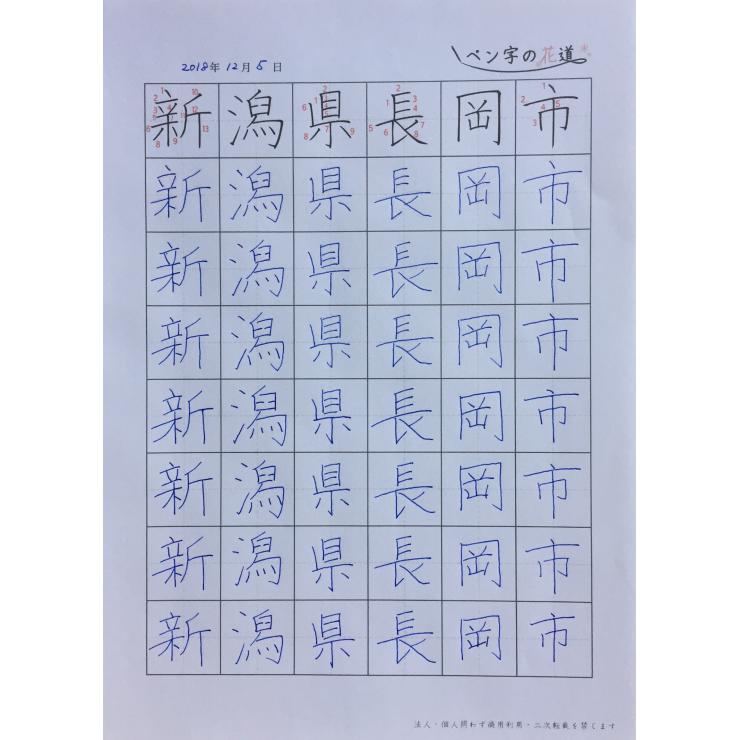 ペン字の花道
2018年12月5日
新潟県長岡市
新潟県長岡市
新潟県長岡市
新潟県長岡市
新潟県長岡市
新潟県長岡市
新潟県長岡市
新潟県長岡市
法人・個人問わず商用利用・二次転載を禁じます